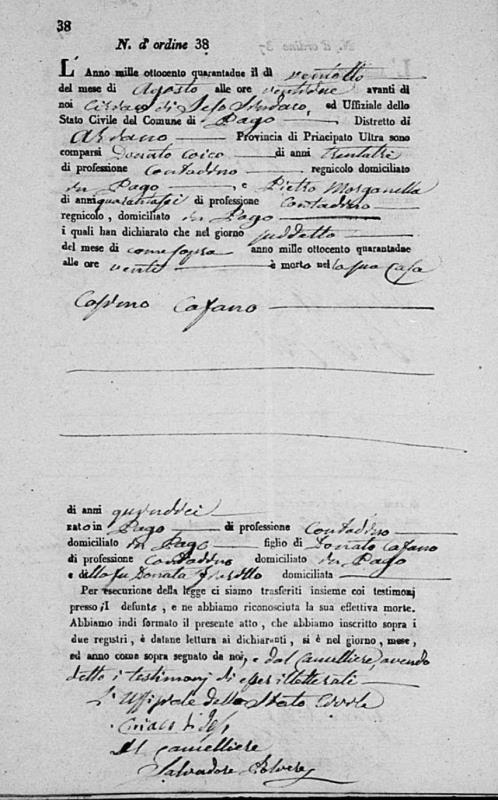 38
N. d'ordine 38
L' Anno mille ottocento quarantadue il dì ventotto
del mese di Agosto alle ore ventidue avanti di
noi Ciriaco di Sindaco, ed Uffiziale dello
Stato Civile del Comune di Pago Distretto di
Ariano Provincia di Principato Ultra sono
comparsi Donato Coico di anni trentatre
di professione Contadino regnicolo domiciliato
in Pago e Pietro Morganella
di anni quarantasei di professione Contadino
regnicolo, domiciliato in Pago
i quali han dichiarato che nel giorno suddetto
del mese di come sopra anno mille ottocento quarantadue
alle ore venti è morto nel la sua Casa
Cosimo Cafano
di anni quindici
nato in Pago di professione Contadino
domiciliato in Pago figlio di Donato Cafano
di professione Contadino domiciliato in Pago
e di della fu Donata domiciliata
Per esecuzione della legge ci siamo trasferiti insieme coi testimonj
presso il defunto, e ne abbiamo riconosciuta la sua effettiva morte.
Abbiamo indi formato il presente atto, che abbiamo inscritto sopra i
due registri, e datane lettura ai dichiaranti, si è nel giorno, mese,
ed anno come sopra segnato da noi, e dal Cancelliere avendo
detto i testimonj di esser illetterati
L'Uffiziale dello Stato Civile
Ciriaco
Il Cancelliere
Salvadore Polvere